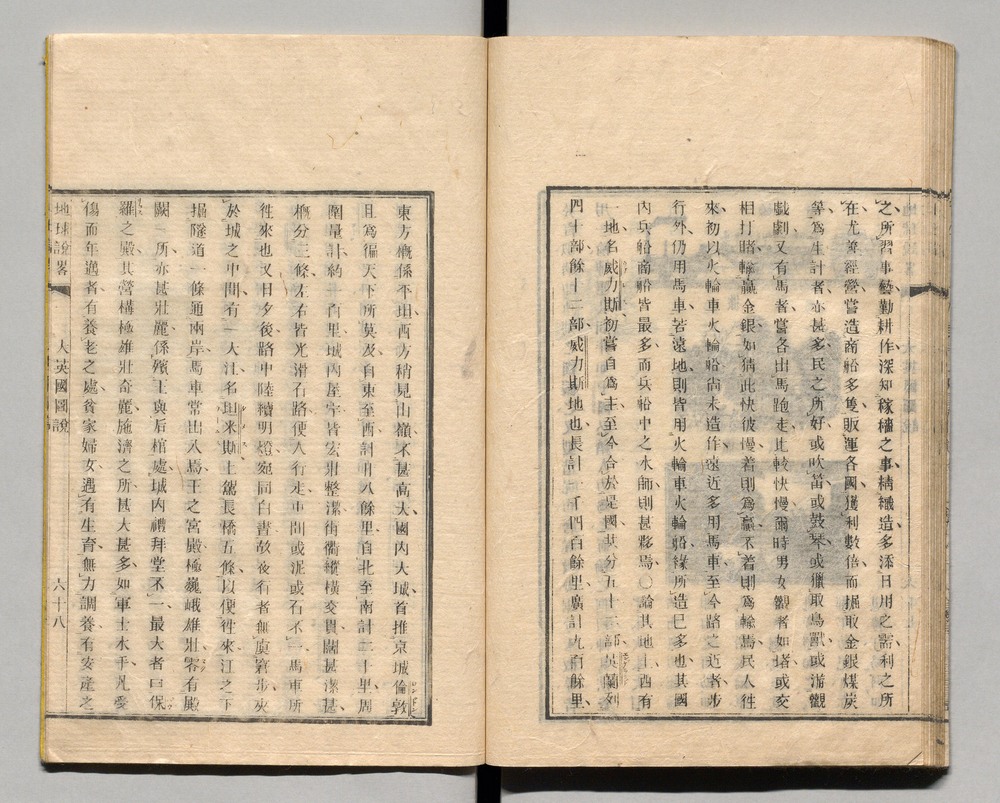 之所習事藝勤耕作深知稼穡之事精織造多添日用之需利之所
在尤善經營嘗造商船多隻販運各國獲利數倍而掘取金銀煤炭
等爲生計者亦甚多民之所好或吹笛或鼓琴或獵取鳥獸或漭觀
戲劇又有馬者嘗各出馬跑走比較快慢爾時男女觀者如堵或交
相打賭輸贏金銀如猜此快彼慢着則爲贏不着則爲輸焉民人徃
來初以火輪車火輪船尚未造作遠近多用馬車至今路之近者步
行外仍用馬車若遠地則皆用火輪車火輪船緣所造已多也其國
內兵船商船皆最多而兵船中之水師則甚夥焉〇論其地土西有
一地名威力斯初嘗自爲主至今合於是國共分五十二部英蘭列
四十部餘十二部威力斯地也長計一千四百餘里廣計九百餘里
東方槪係平坦西方稍見山嶺不甚高大國內大城首推京城倫敦
且爲徧天下所莫及自東至西計月八餘里自北至南計二十里周
圍量計約一百里城內屋宇皆宏壯整潔街衢縱橫交貫闊甚潔甚
槪分三條左右皆光滑石路便人行走中間或泥或石不一馬車所
徃來也又日夕後路中陸續明燈宛同白晝故夜行者無虞窘步夾
於城之中間有一大江名坦米斯上駕長橋五條以便徃來江之下
掘隧道一條通兩岸馬車常出入焉王之宮殿極巍峨雄壯零有殿
闕一所亦甚壯麗係殯王與后棺處城內禮拜堂不一最大者曰保
羅之殿其營構極雄壯奇麗施濟之所甚大甚多如軍士水手凡受
傷而年邁者有養老之處貧家婦女遇有生育無力調養有安產之
地球說畧 大英國圖說 六十八